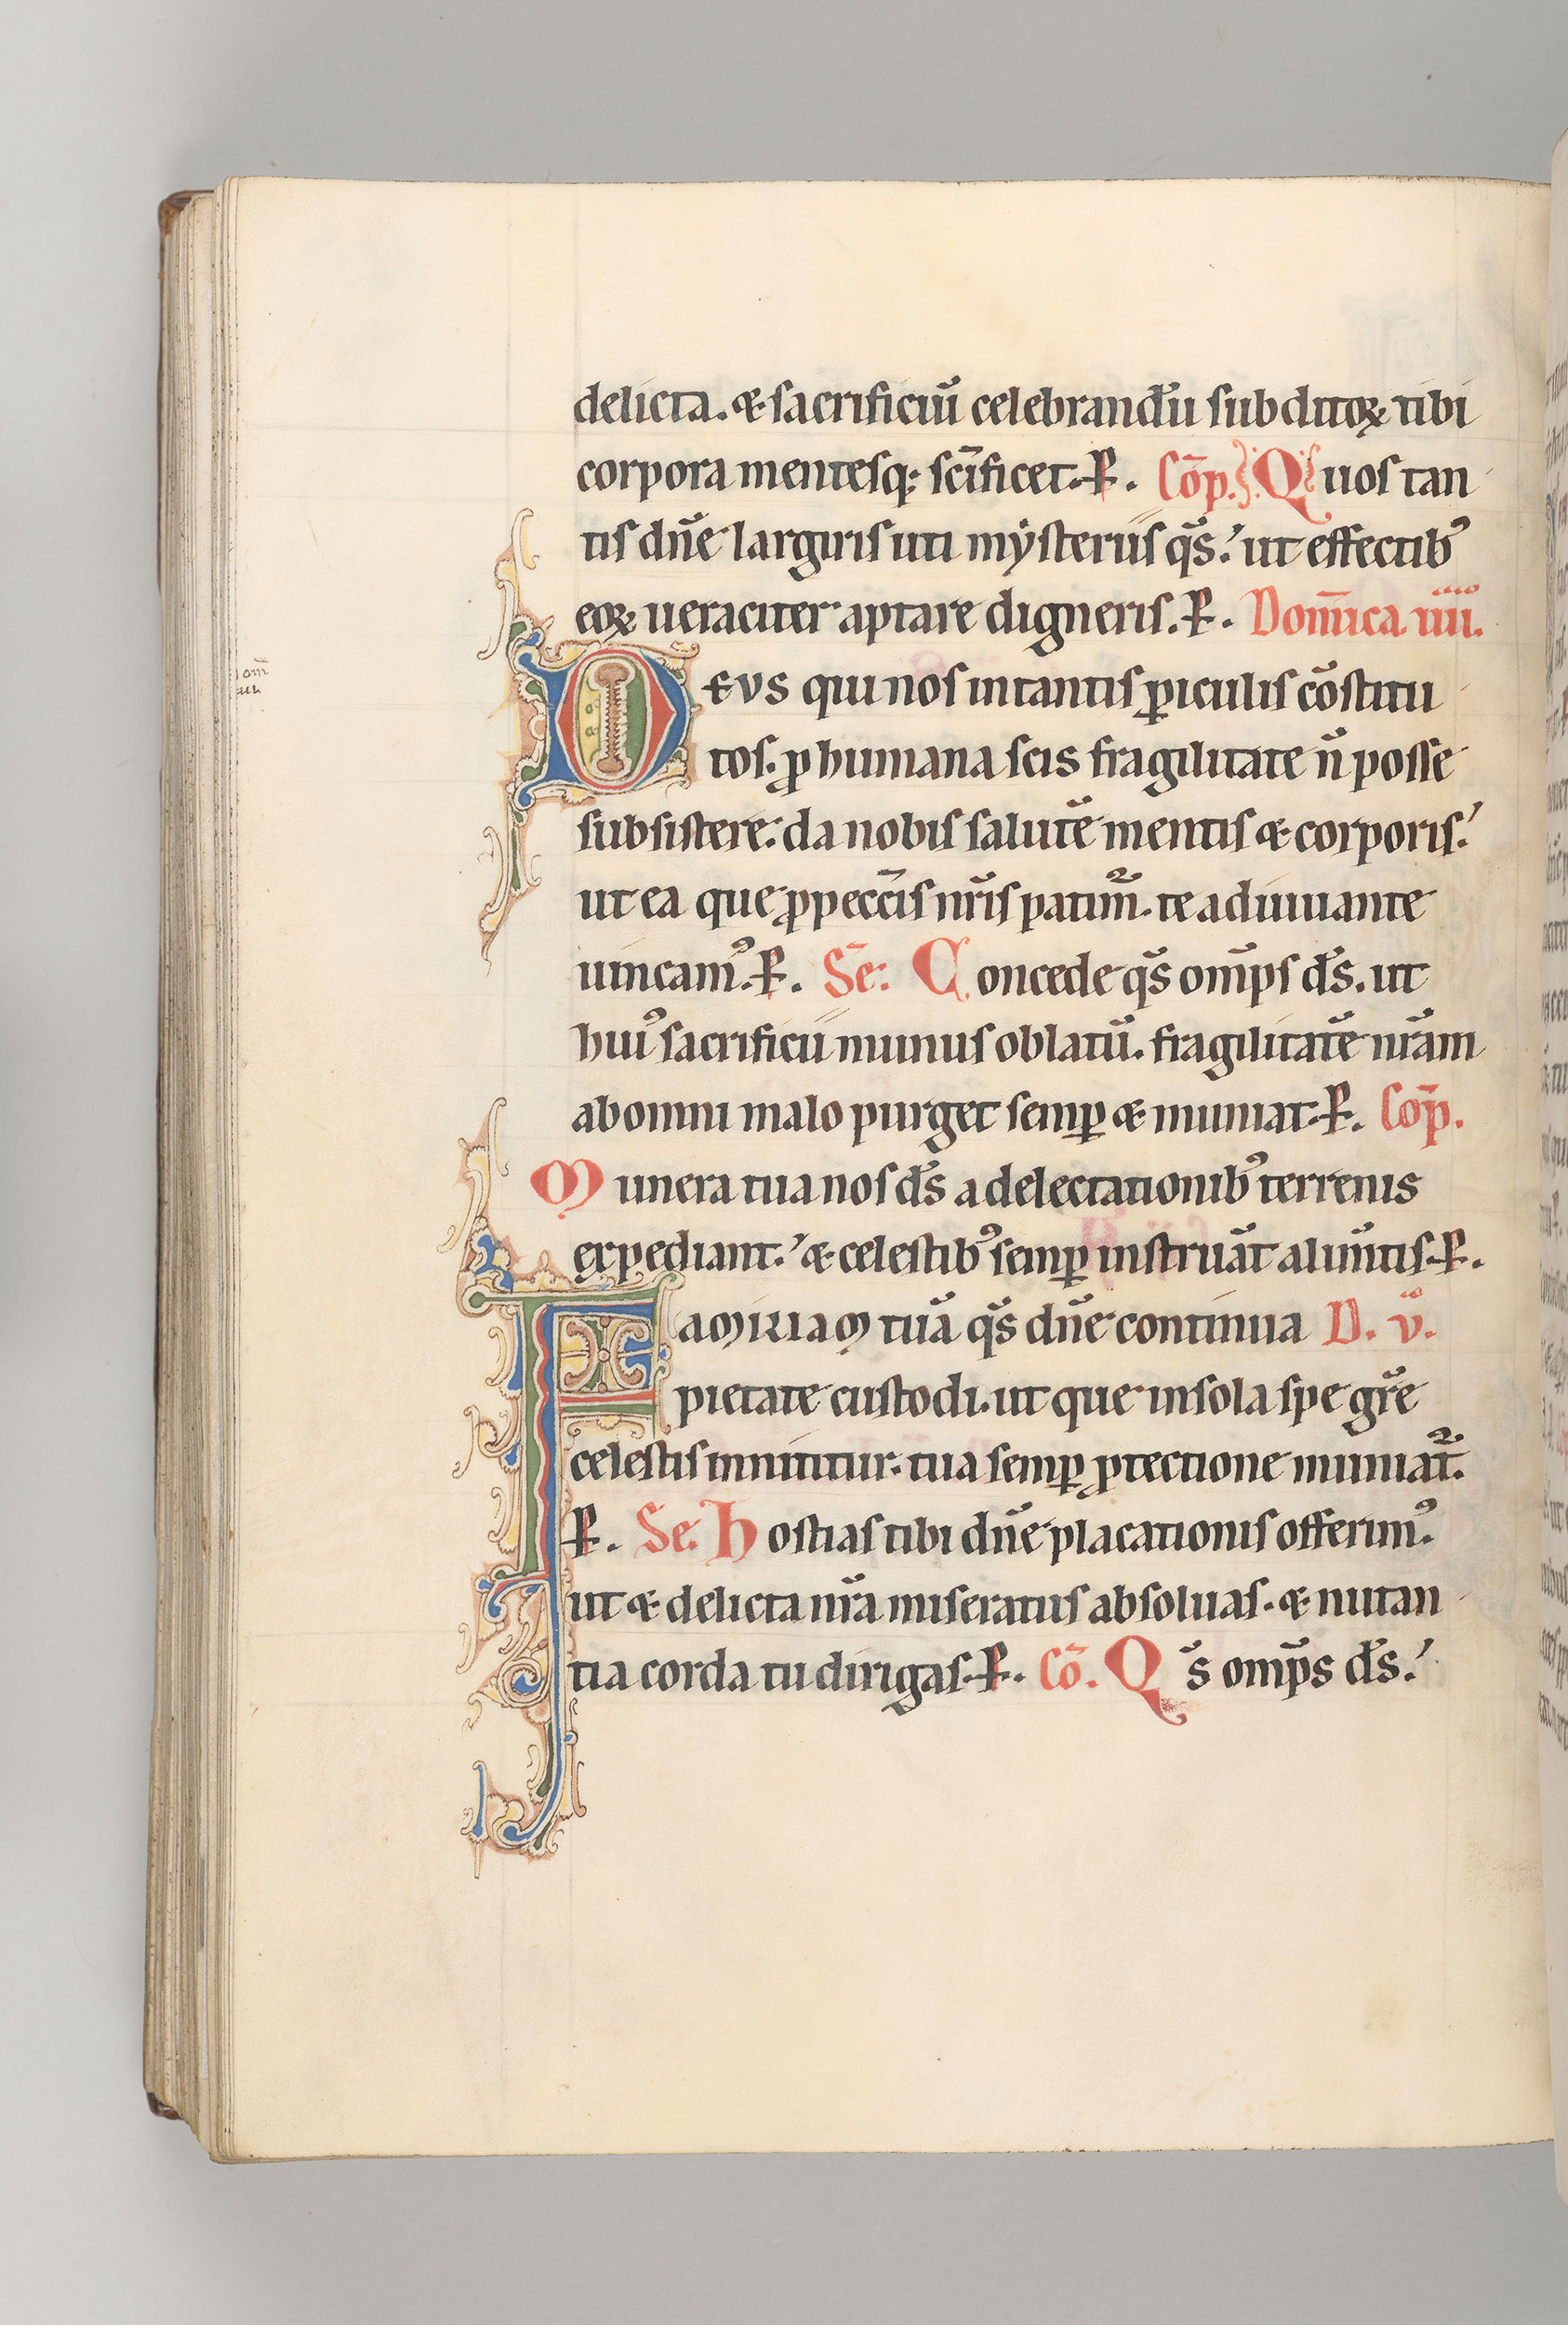 delicta. & sacrificiū celebrandū subditoꝝ tibi
corpora mentesq; sc̄ificet. P̱. Cōp. Quos tan
tis dn̄e largiris uti mẏsteriis qs̄. ut effectibꝰ
eoꝝ ueraciter aptare digneris. P̱. Dom̄ica iiii.
Deus qui nos in tantis ꝑiculis cōstitu
tos. ꝓ humana scis fragilitate n̄ posse
subsistere: da nobis salutē mentis & corporis.
ut ea que ꝓ pecc̄is nr̄is patim᷑. te adiuuante
uincamꝰ. P̱. Se: Concede qs̄ omp̄s ds̄. ut
huiꝰ sacrificii munus oblatū. fragilitatē nr̄am
ab omni malo purget semꝑ & muniat. P̱. Cōp.
Munera tua nos ds̄ a delectationibꝰ terrenis
expediant. & celestibꝰ semꝑ instruāt alim̄tis. P̱.
Familiam tuā qs̄ dn̄e continua D. v̄.
pietate custodi. ut que in sola spe gr̄e
celestis innititur. tua semꝑ ꝓtectione muniat᷑.
P̱. Se. Hostias tibi dn̄e placationis offerimꝰ.
ut & delicta nr̄a miseratus absoluas. & nutan
tia corda tu dirigas. P̱. Cō. Qs̄ omp̄s ds̄.